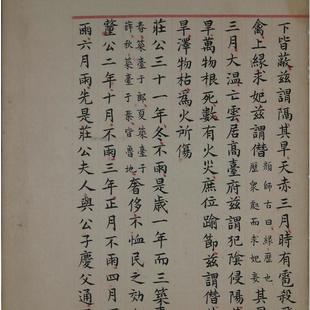 下皆蔽茲謂隔其旱天赤三月時有雹殺
禽上緣求妃茲謂僭顏師古曰緣歷也歷衆處而求妃妾其旱
三月大溫亡雲居高臺府茲謂犯陰侵陽
旱萬物根死數有火災庶位踰節茲謂僭
旱澤物枯為火所傷
莊公三十一年冬不雨是歲一年而三築臺
春築臺于郎夏築臺于薛秋築臺于秦皆魯地奢侈不恤民之効
釐公二年十月不雨三年正月不雨四月不
雨六月雨先是莊公夫人與公子慶父通